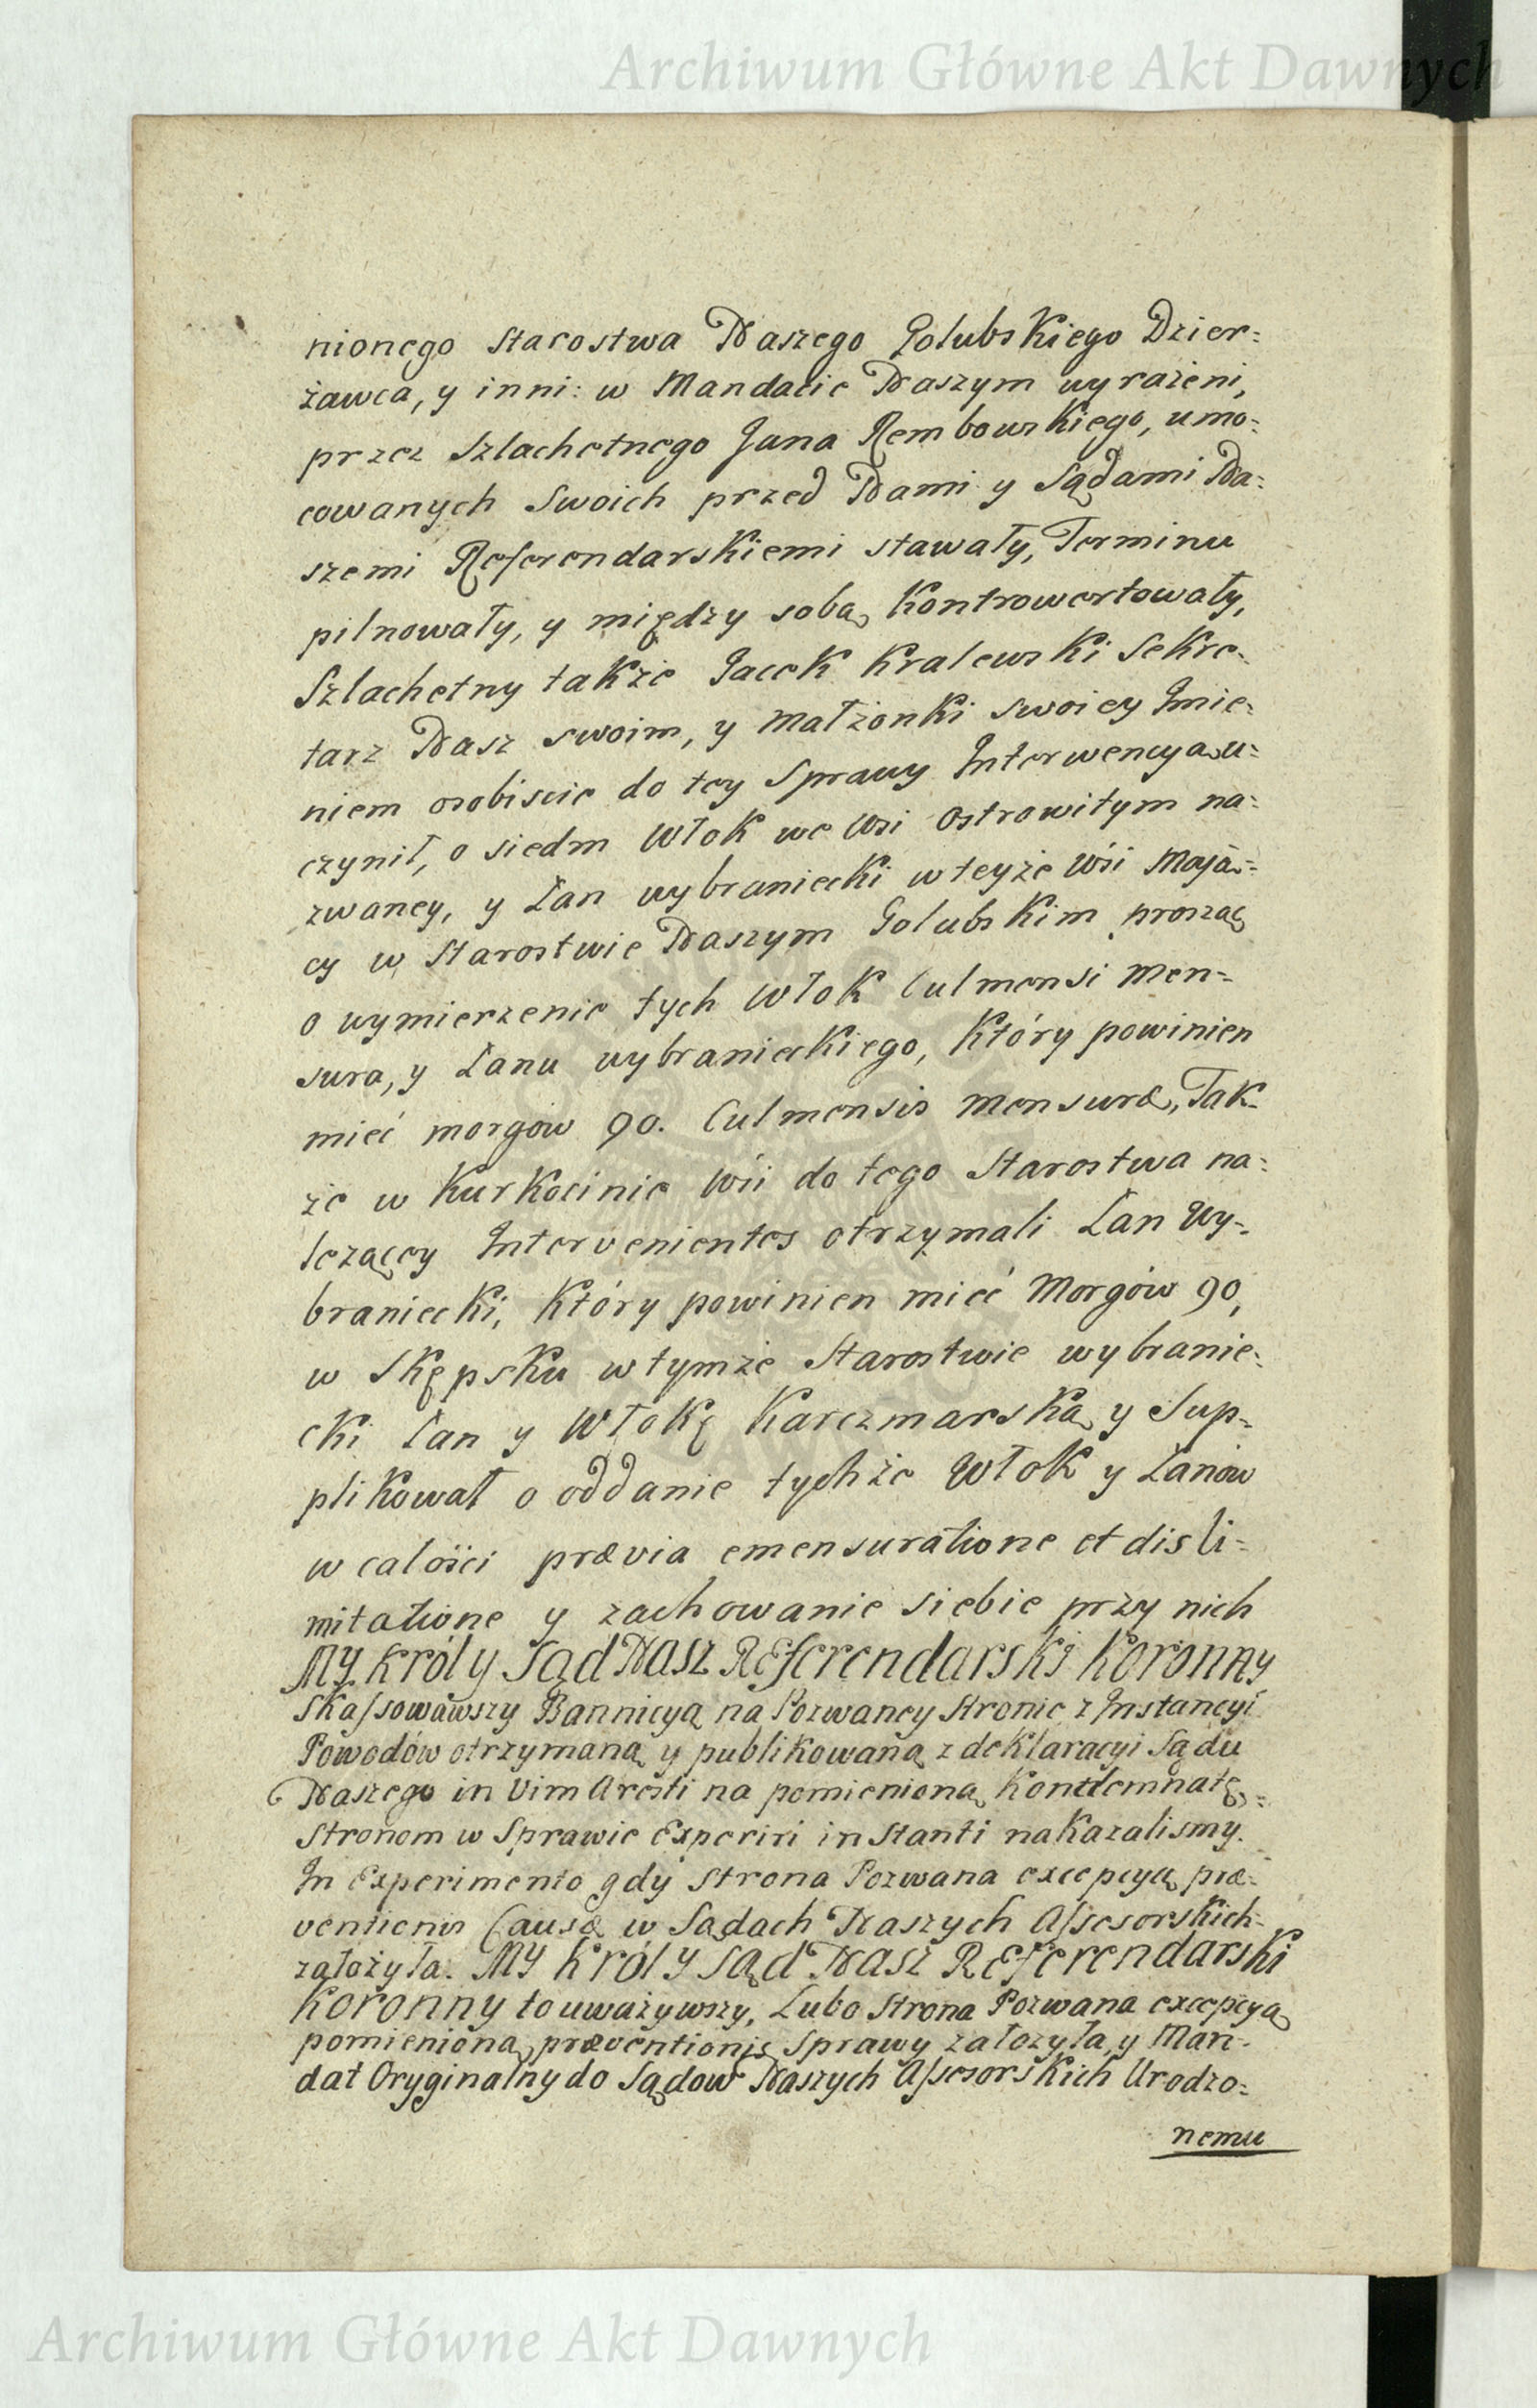 Archiwum Główne Akt Dawnych
nionego Starostwa Naszego Golubskiego Dzier=
żawca, y inni: w Mandacie Naszym wyrażeni,
przez Szlachetnego Jana Rembowskiego, umo=
cowanych Swoich przed Nami y Sądami Na=
szemi Referendarskiemi stawały, Terminu
pilnowały, y między sobą Kontrowertowały,
Szlachetny także Jacek Kralewski Sekre=
tarz Nasz swoim, y Małżonki swoiey Jmie=
niem osobiscie do tey Sprawy Interwencyą u=
czynił, o siedm Włok we Wsi Ostrowitym na=
zwaney, y Łan wybraniecki w teyże Wsi Mają=
cy w Starostwie Naszym Golubskim prosząc
o wymierzenie tych Włok Culmensi Men=
sura, y Łanu wybranieckiego, Który powinien
mieć morgow 90. Culmensis Mensuræ, Tak
że w Kurkocinie Wsi do tego Starostwa na=
leżącey Intervenientes otrzymali Łan Wy=
braniecki, Który powinien mieć Morgów 90,
w Skępsku w tymże Starostwie wybranie=
cki Łan y Włokę Karczmarską y Sup=
plikował o oddanie tychże Włok y Łanów
w całości prævia emensuratione et disli=
mitatione y zachowanie siebie przy nich
My Król y Sąd Nasz Referendarski Koronny
Skassowawszy Bannicyą na Pozwaney Stronie z Instancyi
Powodów otrzymaną y publikowaną z deklaracyi Sądu
Naszego in Vim Aresti na pomienioną Kondemnatę,=
Stronom w Sprawie Experiri in Stanti nakazalismy.
In Experimento gdy Strona Pozwana excepcyą præ=
ventionis Causæ w Sądach Naszych Assesorskich
założyła. My Król y Sąd Nasz Referendarski
Koronny to uważywszy, Lubo Strona Pozwana excepcyą
pomienioną præventionis Sprawy założyła, y Man=
dat Oryginalny do Sądow Naszych Assesorskich Urodzo=
nemu
Archiwum Główne Akt Dawnych